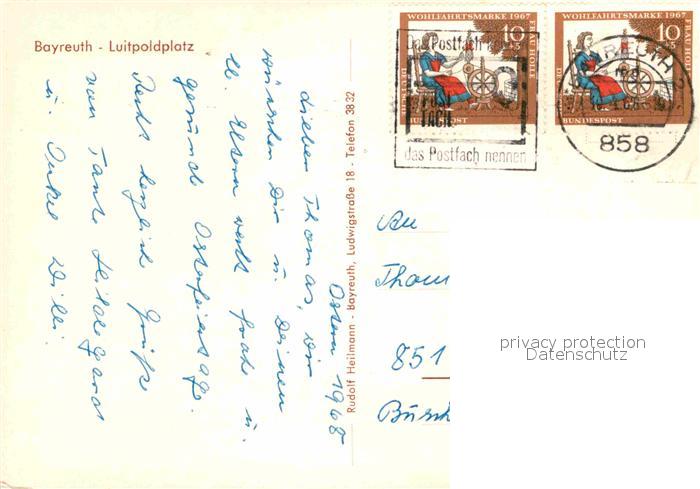 Bayreuth - Luitpoldplatz
Ostern 1968
Lieber Thomas, wir
wünschen Dir u. Deinen
lb. Eltern recht frohe u.
gesunde Osterfeiertage.
Recht herzliche Grüße
von Tante Hildegard
u. Onkel Willi.
Rudolf Heilmann - Bayreuth, Ludwigstraße 18 - Telefon 3832
WOHLFAHRTSMARKE 1967
10+5
FRAU HOLLE
DEUTSCHE
BUNDESPOST
WOHLFAHRTSMARKE 1967
10+5
FRAU HOLLE
BUNDESPOST
Das Postfach
das Postfach nennen
858
An
Thom
851
privacy protection
Datenschutz